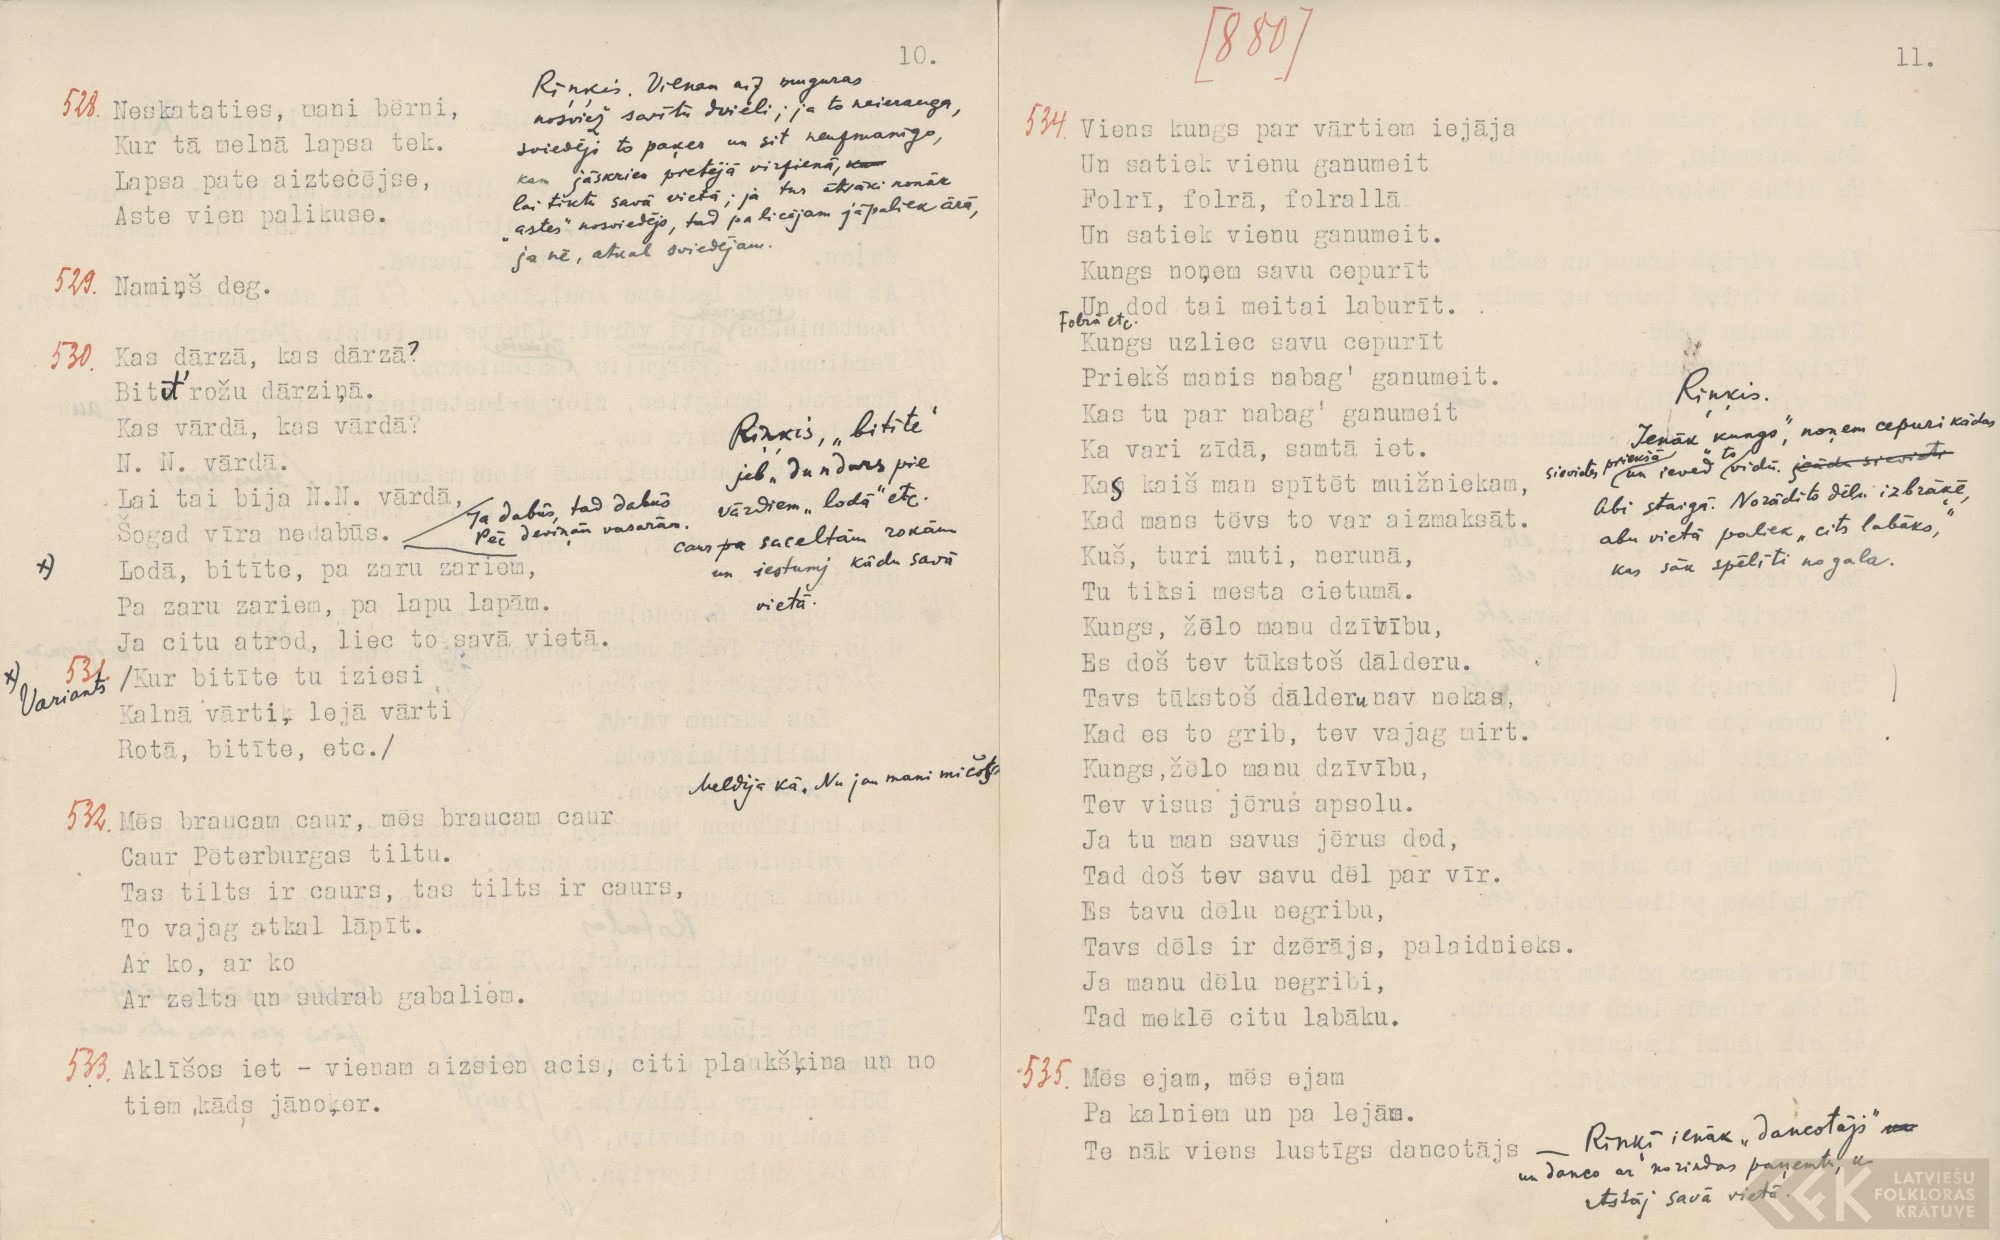 10.
528. Neskataties, mani bērni,
Kur tā melnā lapsa tek.
Lapsa pate aiztecējse,
Aste vien palikuse.
Riņķis. Vienam aiz muguras
nosviež savītu dvieli; ja to neierauga,
sviedējs to paķer un sit neuzmanīgo,
kam jāskrien pretējā virzienā,
lai tiktu savā vietā; ja tur ātrāki nonāk
"astes" nosviedējs, tad palicējam jāpaliek ārā,
ja nē, atkal sviedējam.
529. Namiņš deg.
530. Kas dārzā, kas dārzā?
Bitīt' rožu dārziņā.
Kas vārdā, kas vārdā?
N. N. vārdā.
Lai tai bija N.N. vārdā,
Šogad vīra nedabūs.
Ja dabūs, tad dabūs
Pēc deviņām vasarām.
x) Lodā, bitīte, pa zaru zariem,
Pa zaru zariem, pa lapu lapām.
Ja citu atrod, liec to savā vietā.
Riņķis, "bitīte"
jeb "dundurs pie
vārdiem "lodā" etc.
caur pa saceltām rokām
un iestumj kādu savā
vietā.
x) Variants
531. /Kur bitīte tu iziesi
Kalnā vārti, lejā vārti
Rotā, bitīte, etc./
Meldija kā. Nu jau mani
532. Mēs braucam caur, mēs braucam caur
Caur Pēterburgas tiltu.
Tas tilts ir caurs, tas tilts ir caurs,
To vajag atkal lāpīt.
Ar ko, ar ko
Ar zelta un sudrab gabaliem.
533. Aklīšos iet - vienam aizsien acis, citi plaukšķina un no
tiem kāds jānoķer.
[880]
11.
534. Viens kungs par vārtiem iejāja
Un satiek vienu ganumeit
Folrī, folrā, folrallā
Un satiek vienu ganumeit.
Kungs noņem savu cepurīt
Un dod tai meitai laburīt.
Folrā etc.
Kungs uzliec savu cepurīt
Priekš manis nabag' ganumeit.
Kas tu par nabag' ganumeit
Ka vari zīdā, samtā iet.
Kas kaiš man spītēt muižniekam,
Kad mans tēvs to var aizmaksāt.
Kuš, turi muti, nerunā,
Tu tiksi mesta cietumā.
Kungs, žēlo manu dzīvību,
Es doš tev tūkstoš dālderu.
Tavs tūkstoš dālderu nav nekas,
Kad es to grib, tev vajag mirt.
Kungs, žēlo manu dzīvību,
Tev visus jērus apsolu.
Ja tu man savus jērus dod,
Tad doš tev savu dēl par vīr.
Es tavu dēlu negribu,
Tavs dēls ir dzērājs, palaidnieks.
Ja manu dēlu negribi,
Tad meklē citu labāku.
Riņķis.
Ienāk "kungs", noņem cepuri kādas
sievietes priekšā un ieved to vidū.
Abi staigā. Norādīto dēlu izbrāķē,
abu vietā paliek "cits labāks,"
kas sāk spēlīti no gala.
535. Mēs ejam, mēs ejam
Pa kalniem un pa lejām.
Te nāk viens lustīgs dancotājs
Riņķī ienāk "dancotājs"
un danco ar no rindas paņemtu, u
Atstāj savā vietā.
LATVIEŠU
FOLKLORAS
KRĀTUVE